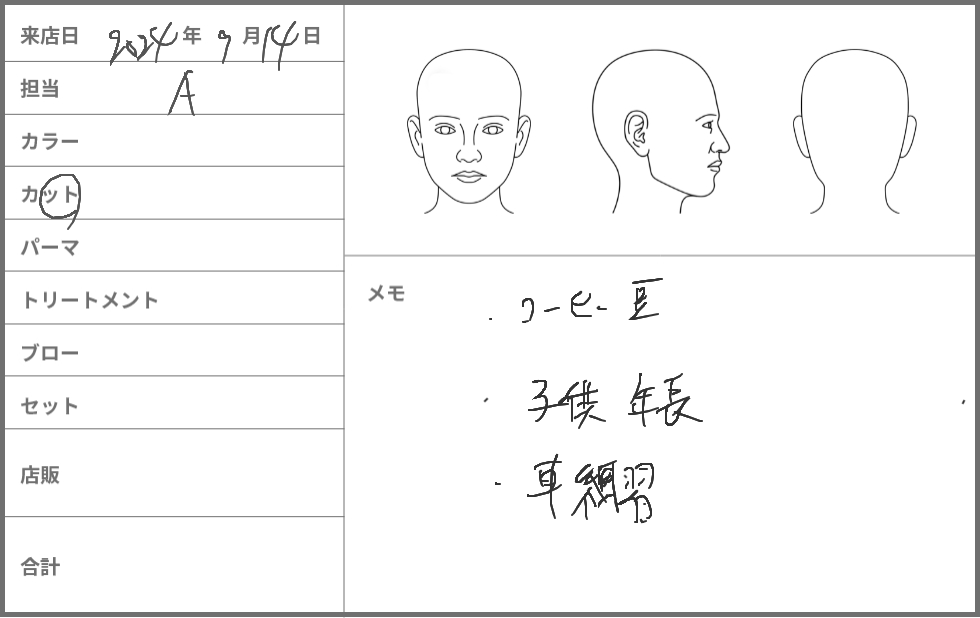 来店日 2024年9月14日
担当 A
カラー
カット
パーマ
トリートメント
ブロー
セット
店販
合計
メモ
・コーヒー豆
・子供 年長
・車練習